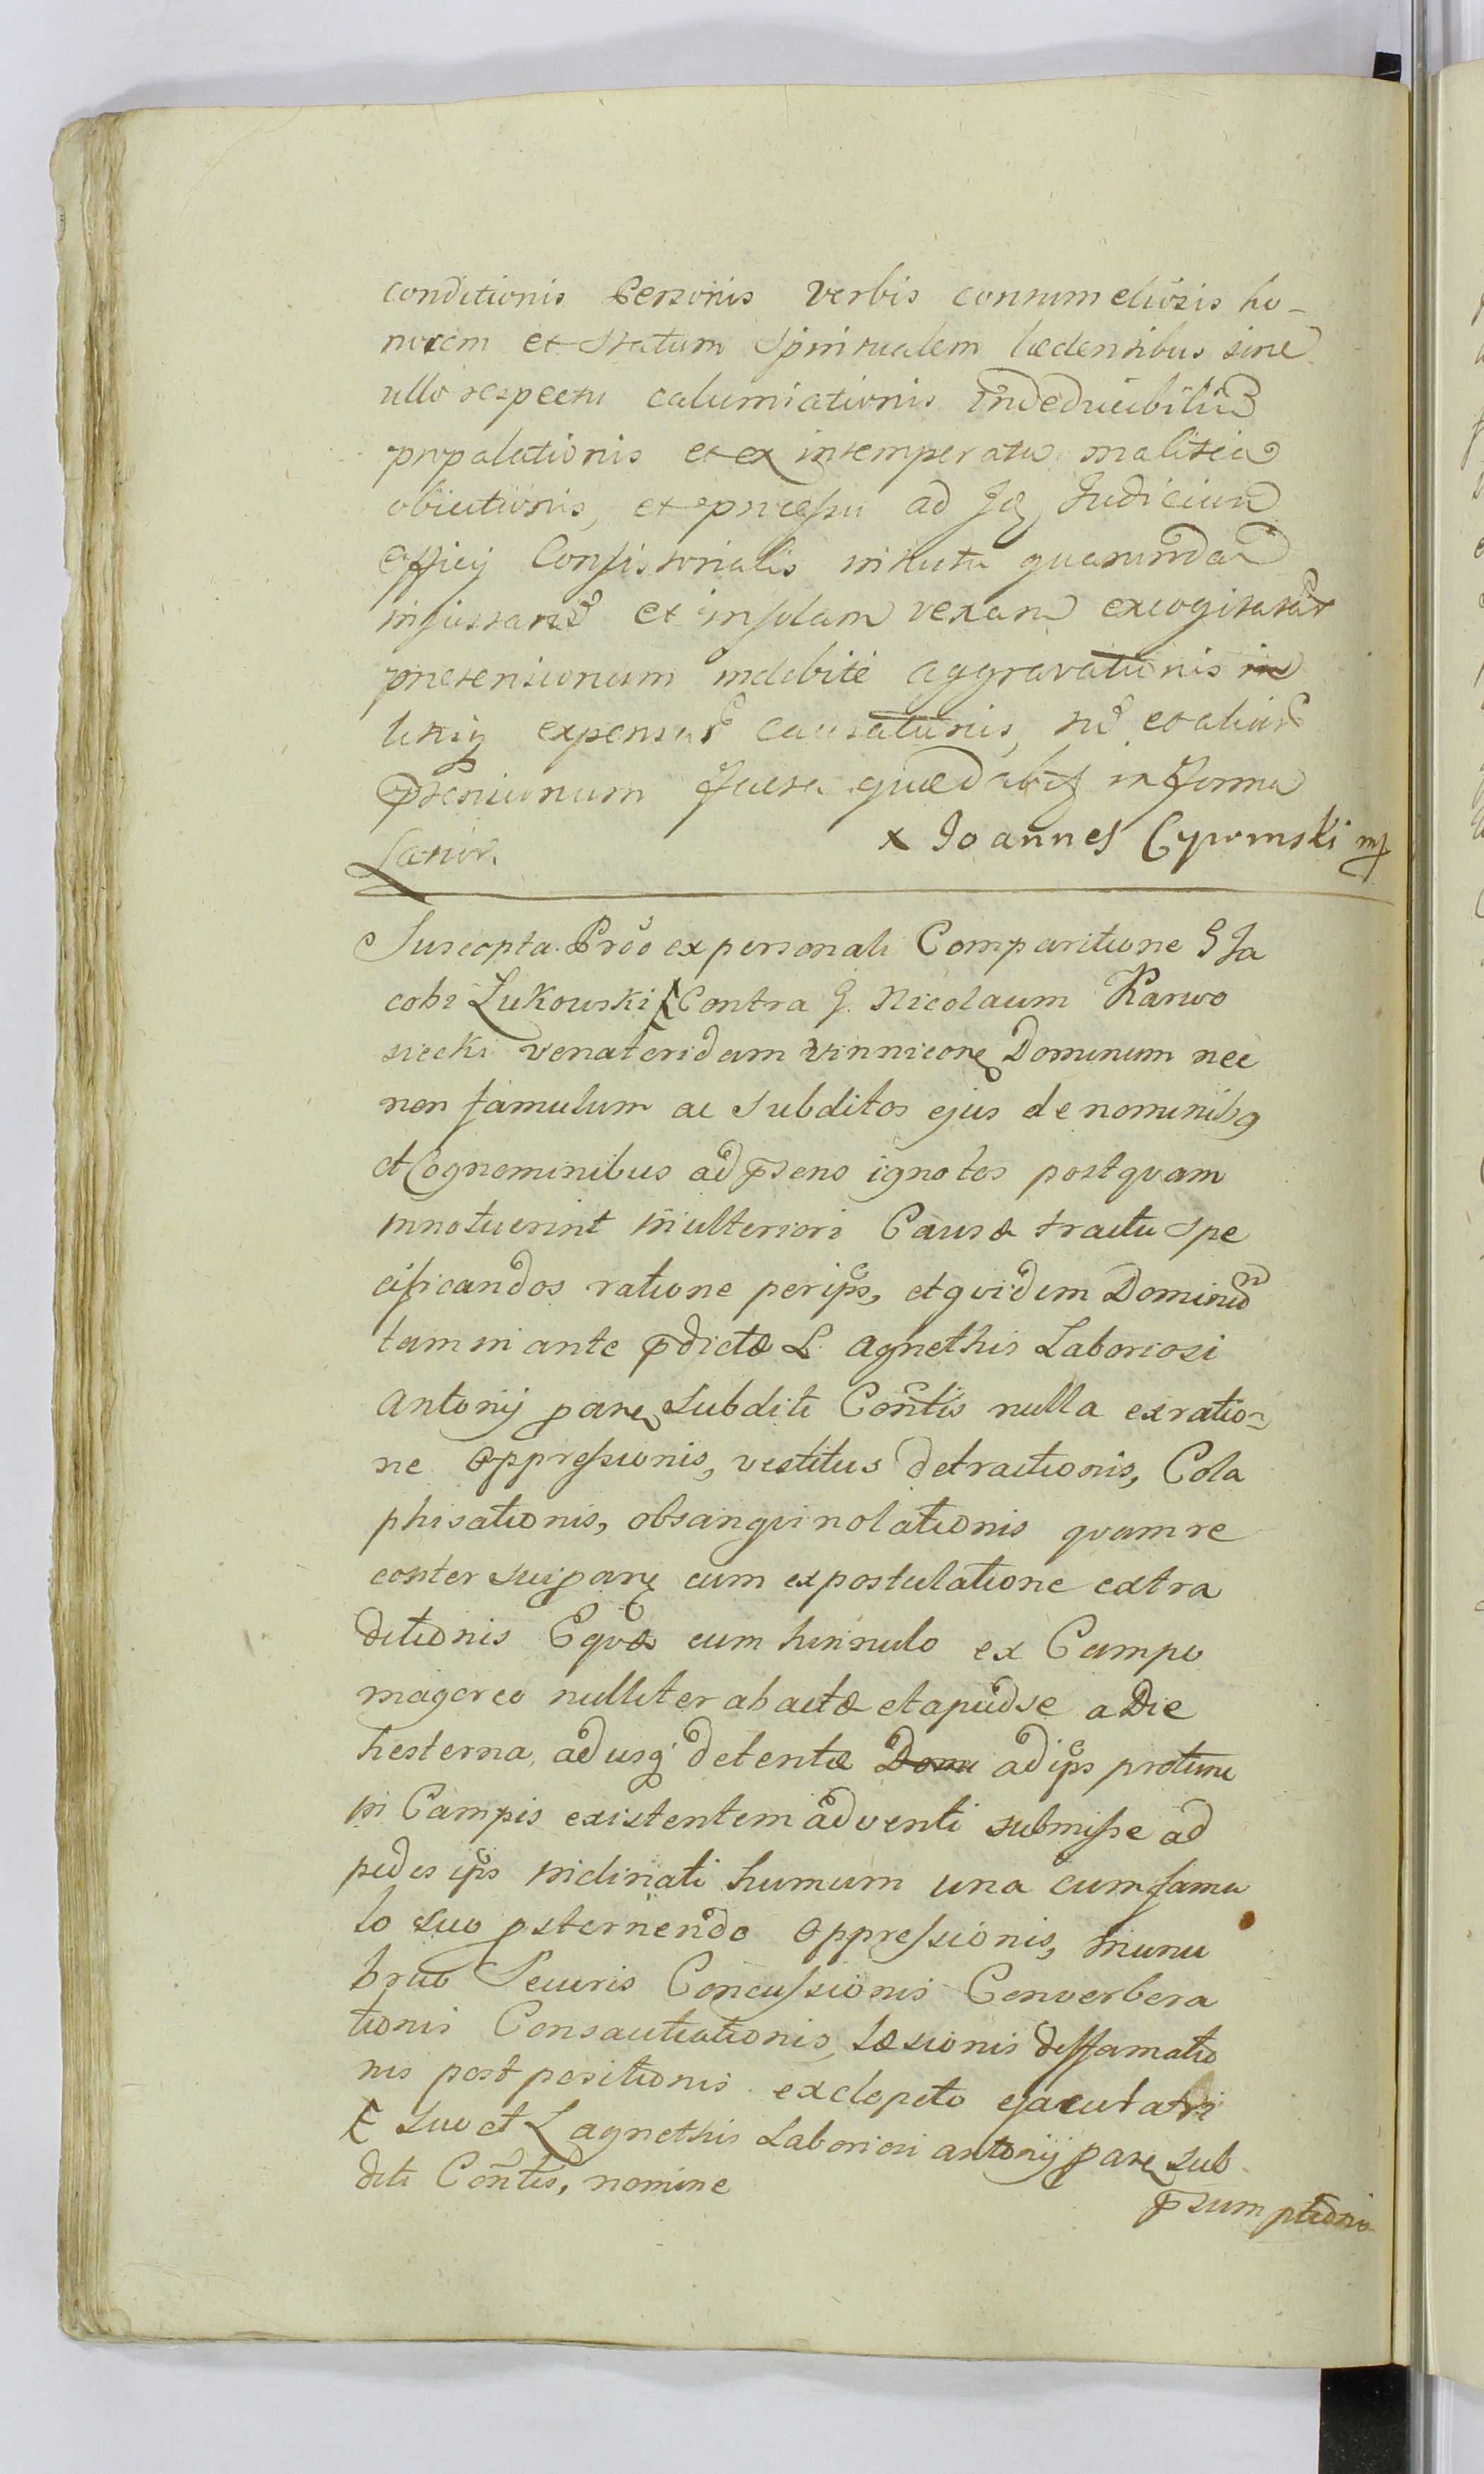 conditionis Personis verbis contumeliosis ho-
norem et Statum Spiritualem lædentibus sine
ullo respectu calumniationis
propalationis et ex intemperata malitia
obiectionis, et processu ad Judicium
officij Consistorialis quarundam
et insolam vexam excogitatar
pretensionum indebite aggravationis in
litis expensar causationis, nõ et aliar
ptensionum facta quædabit in forma
Latiori.
x Joannes Cypromski mp
Suscepta Prõo ex personali Comparitione G Ja
cobi Lukowski [ Contra G. Nicolaum Karwo
siecki venatoridam vinnicorẽ Dominum nec
non famulum ac subditos ejus de nominibq
et Cognominibus ad pséns ignotos postquam
innotuerint in ulteriori Causæ tractu spe
cificandos ratione perips, et quidem Dominũ
tam in ante pdictæ L. Agnethis Laboriosi
Antonij parẽ Subditi Contis nulla ex ratio-
ne Oppressionis, vestitus detractionis, Cola
phisationis, obsangvinolationis quam re
center sui parẽ cum expostulatione extra
ditionis Eqvæ cum hinnulo ex Campo
magoreo nulliter abactæ et apud se a Die
hesterna, ad usq detentæ Domu ad ips protunc
in Campis existentem adventi submisse ad
pedes ips inclinati humum una cum famu
lo suo psternendo Oppressionis, manu
brio Securis Concussionis Converbera
tionis Consauciationis, Læsionis deffamatio
nis post positionis ex clopeto ejaculatri
[ suo et L agnethis Laboriosi antonij parẽ sub
diti Contis, nomine
psumptionis